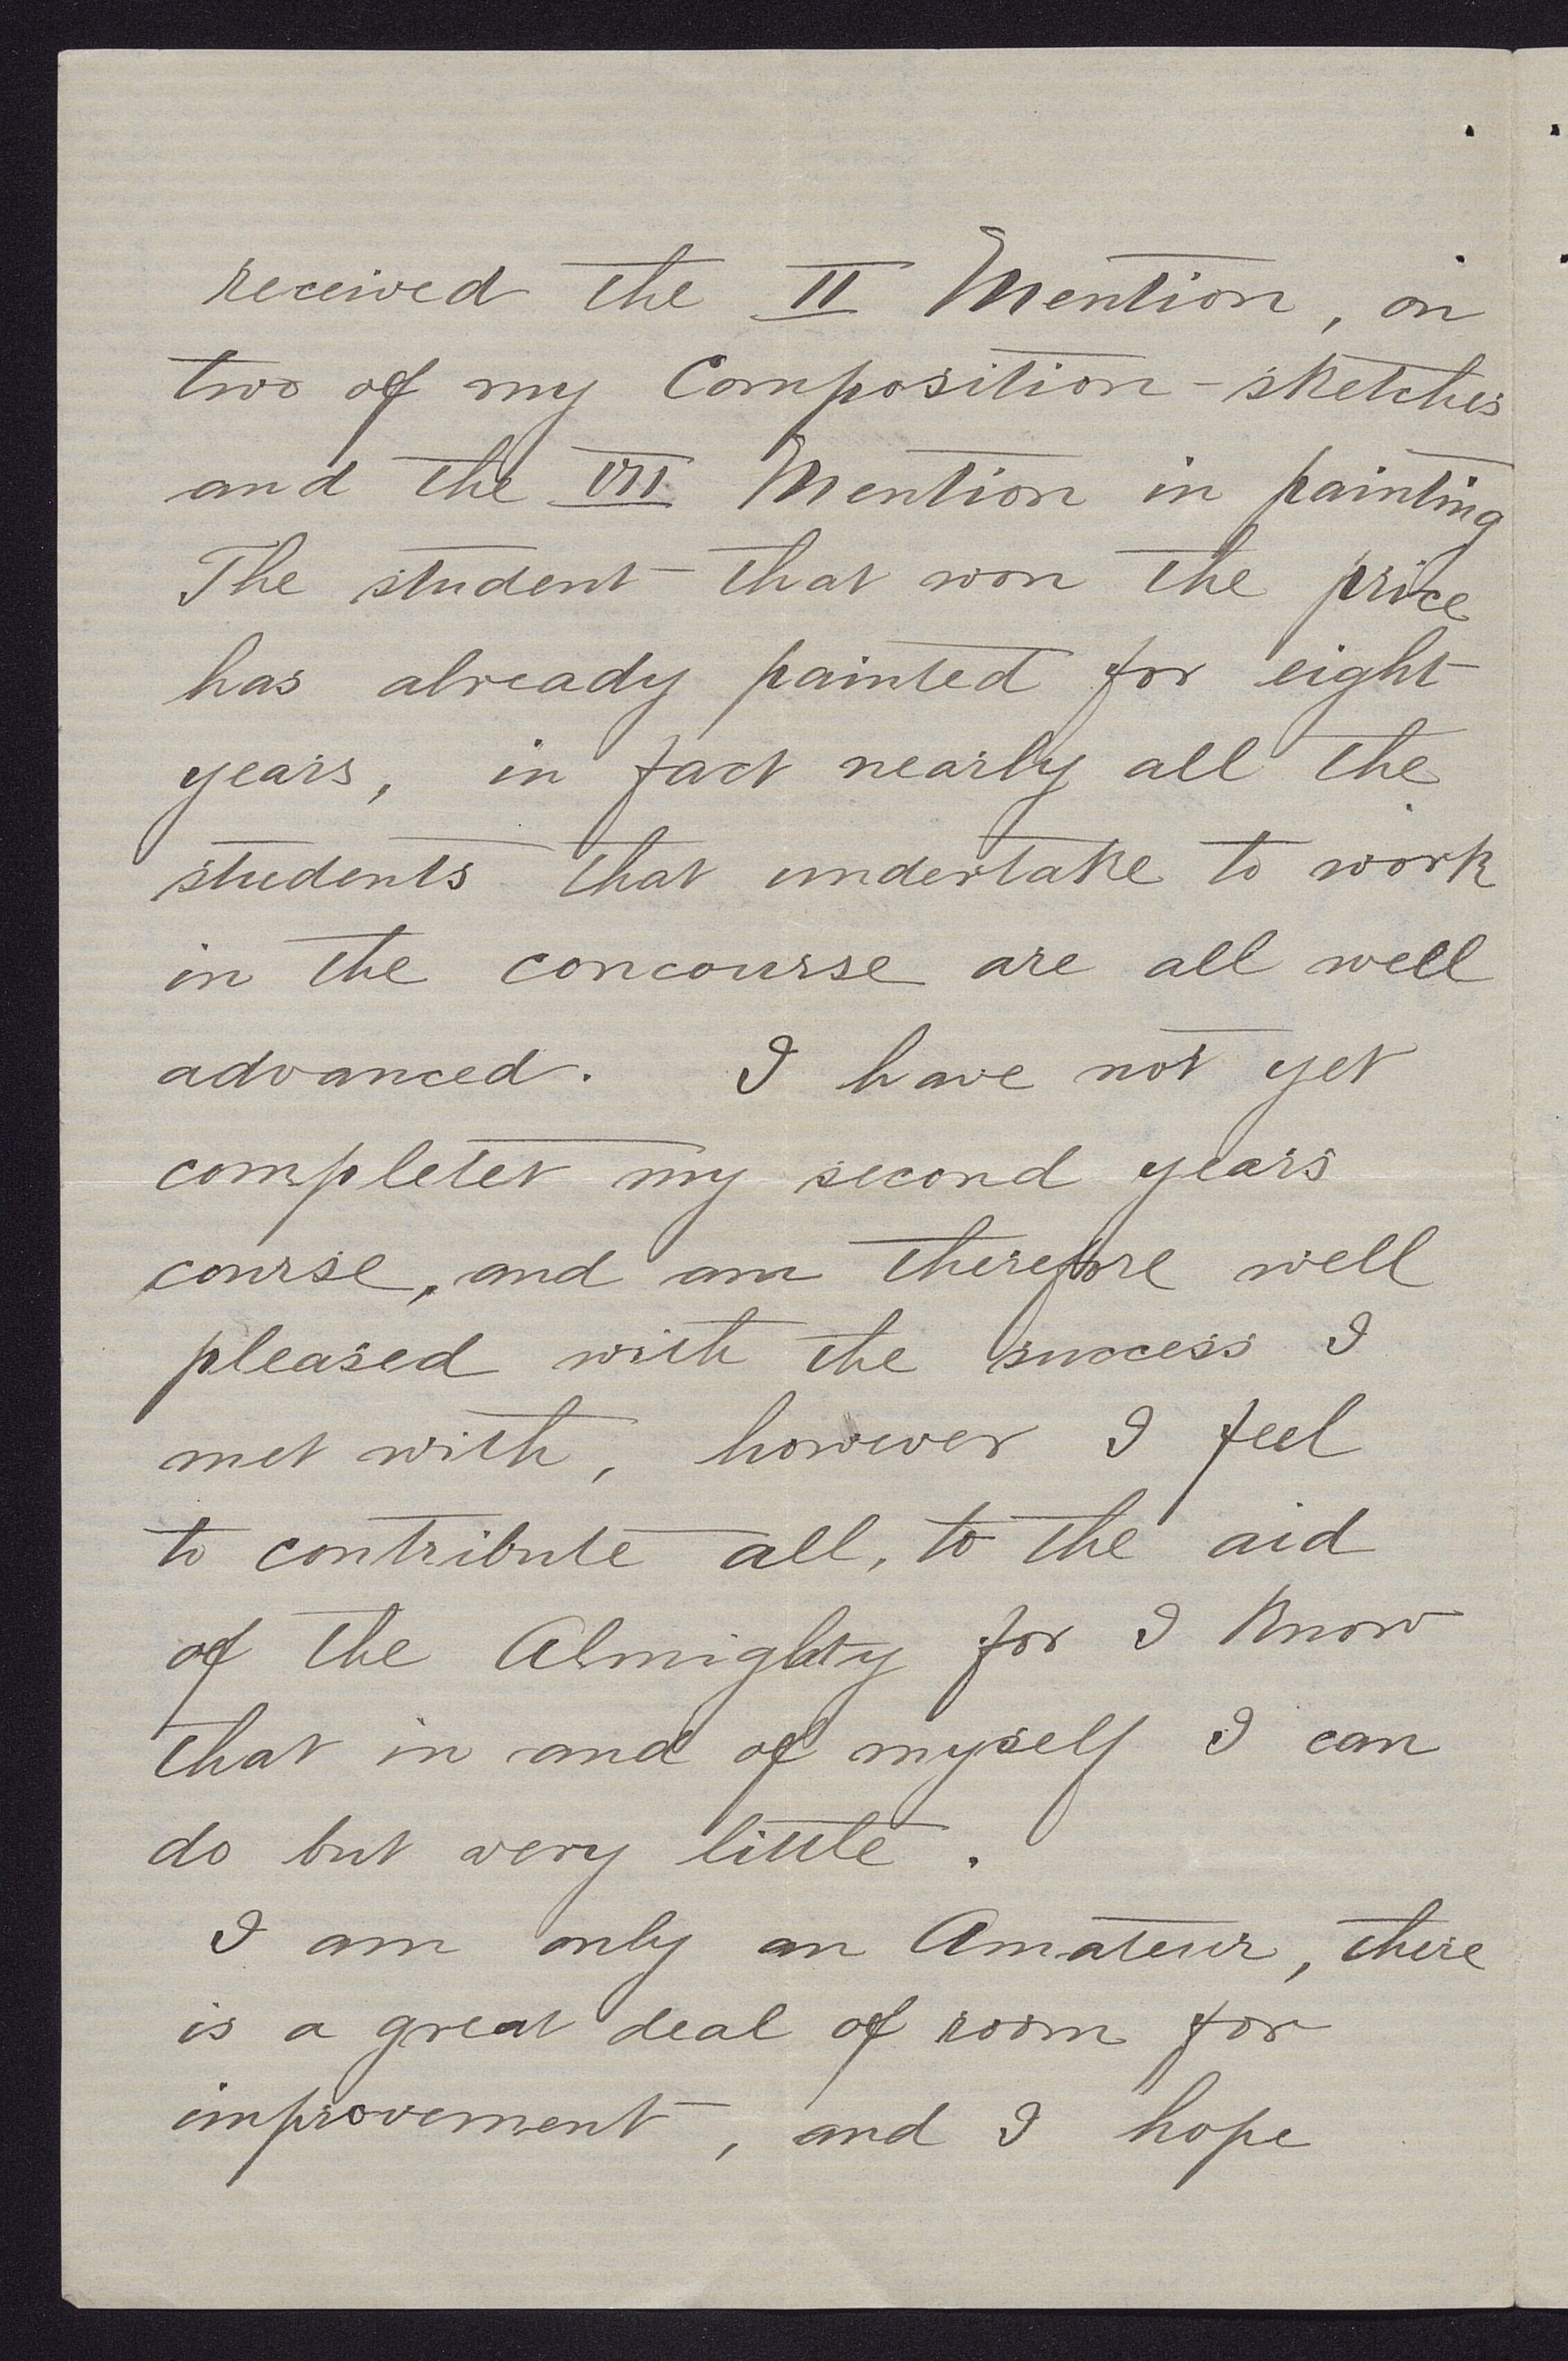 received the II Mention, on
two of my Composition-sketches
and the VII Mention in painting
The student that won the price
has already painted for eight
years, in fact nearly all the
students that undertake to work
in the concourse are all well
advanced. I have not yet
completet my second years
course, and am therefore well
pleased with the success I
met with, however I feel
to contribute all, to the aid
of the Almighty for I know
that in and of myself I can
do but very little.
I am only an Amateur, there
is a great deal of room for
improvement, and I hope